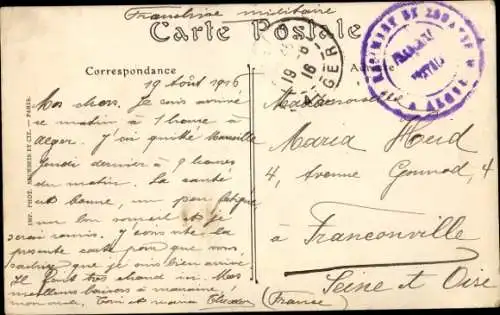 Franchise militaire
Carte Postale
Correspondance
19 Août 1916
Mes chers. Je suis arrivé
ce matin à 1 heure à
Alger. J'ai quitté Marseille
jeudi dernier à 9 heures
du matin. La santé
est bonne, un peu fatigué,
un bon somme et je
serai remis. J'écris vite la
présente carte pour que vous
sachiez que je suis bien arrivé
Il fait très chaud ici. Mes
meilleurs baisers à
REGIMENT DE ZOUAVES
19
16
ALGER
Maria
4, Avenue Gounod, 4
à Franconville
Seine et Oise
(France)